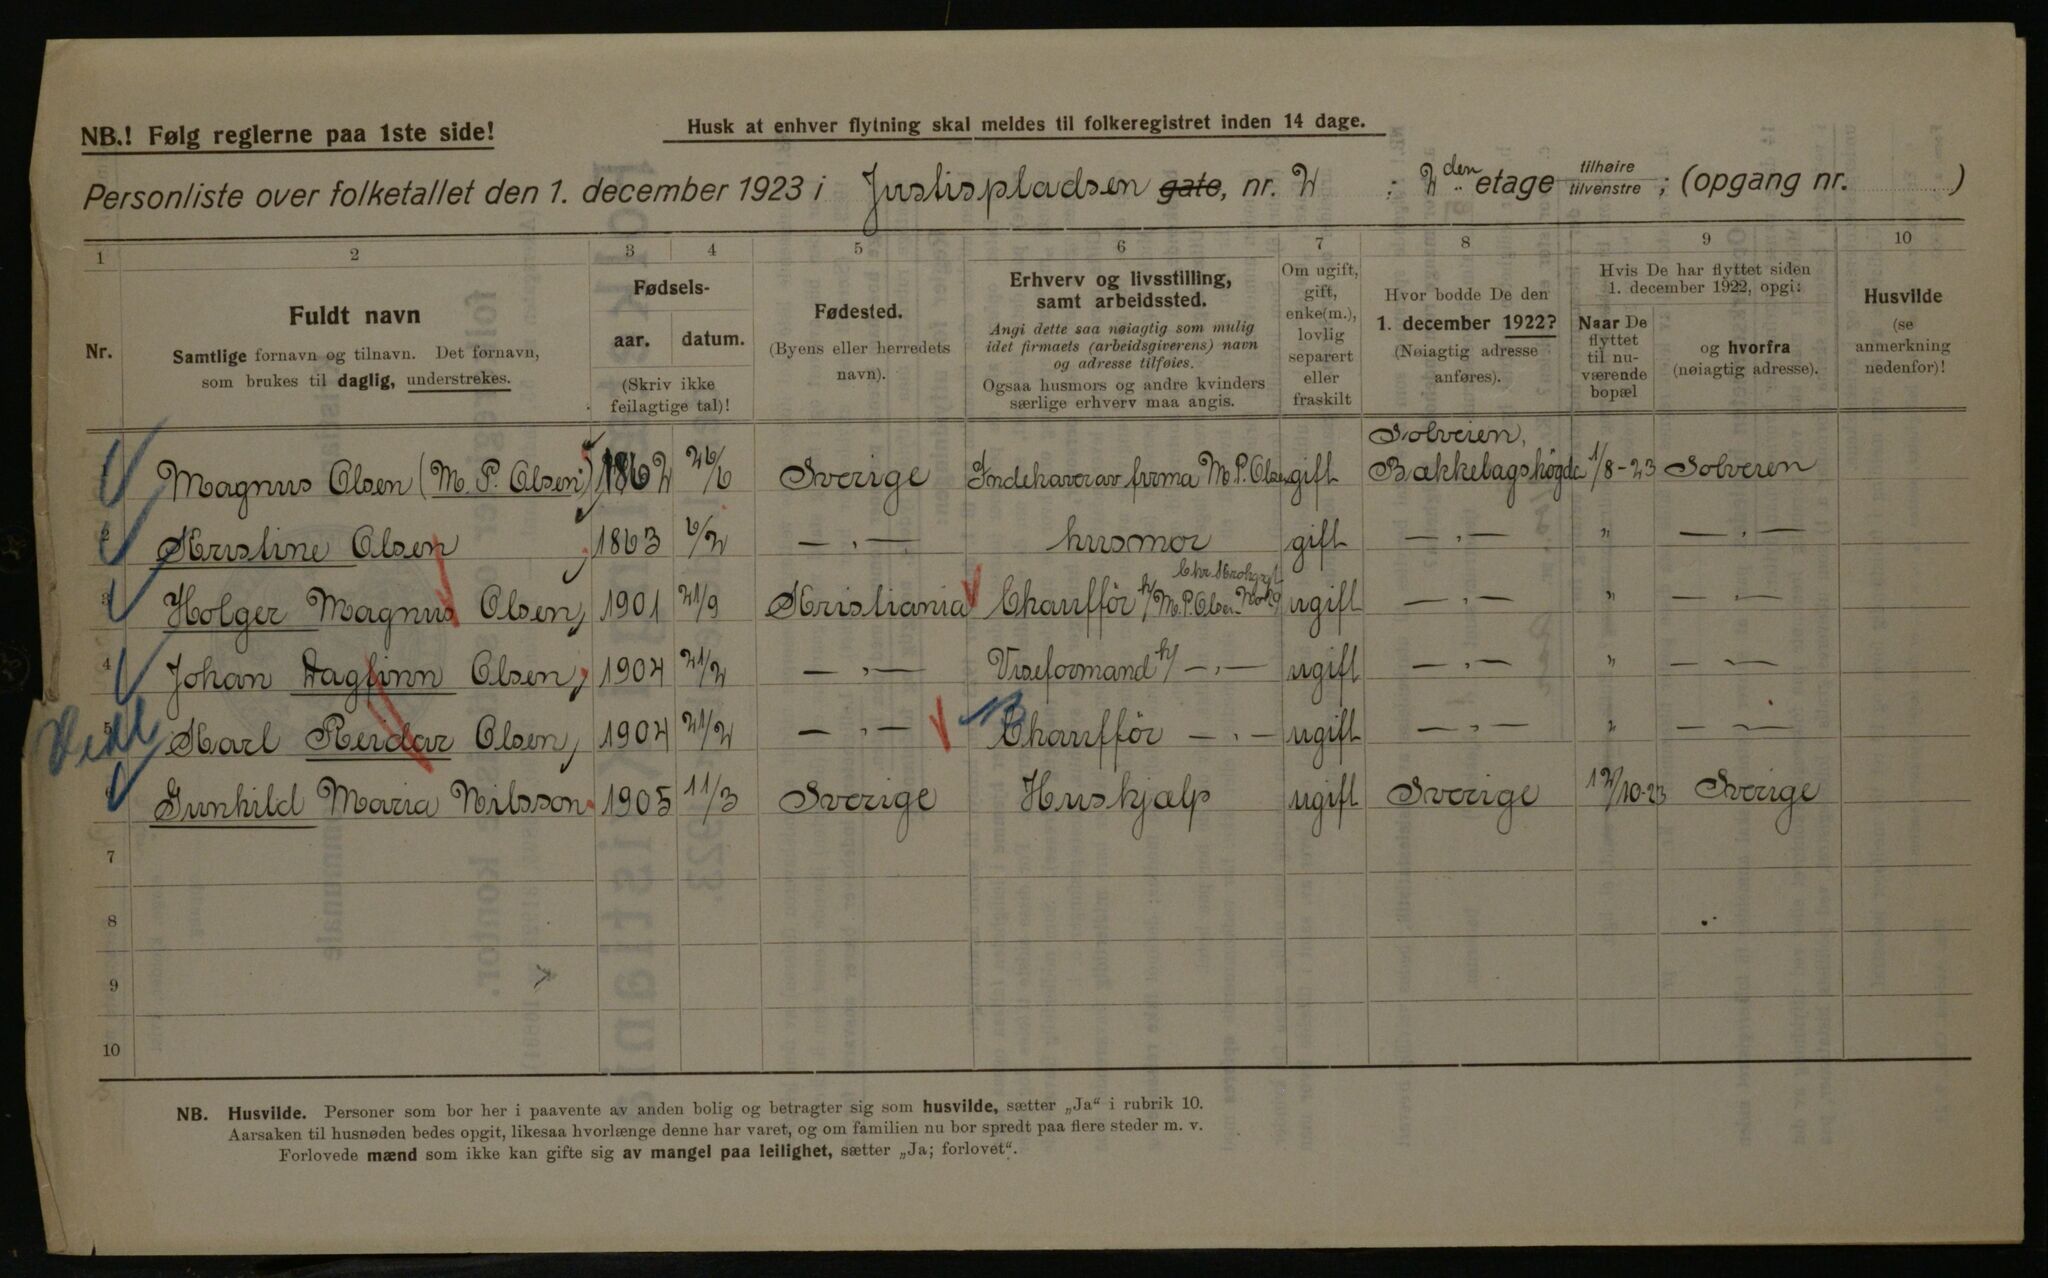 NB.! Følg reglerne paa 1ste side!
Husk at enhver flytning skal meldes til folkeregistret inden 14 dage.
Personliste over folketallet den 1. december 1923 i Justispladsen gate, nr. 2 ; 2den etage tilhøire tilvenstre ; (opgang nr. )
1 2 3 4 5 6 7 8 9 10
Nr.
Fuldt navn
Samtlige fornavn og tilnavn. Det fornavn,
som brukes til daglig, understrekes.
Fødsels-
aar. datum.
(Skriv ikke
feilagtige tal)!
Fødested.
(Byens eller herredets
navn).
Erhverv og livsstilling,
samt arbeidssted.
Angi dette saa nøiagtig som mulig
idet firmaets (arbeidsgiverens) navn
og adresse tilføies.
Ogsaa husmors og andre kvinders
særlige erhverv maa angis.
Om ugift,
gift,
enke(m.),
lovlig
separert
eller
fraskilt
Hvor bodde De den
1. december 1922?
(Nøiagtig adresse
anføres).
Hvis De har flyttet siden
1. december 1922, opgi:
Naar De
flyttet
til nu-
værende
bopæl
og hvorfra
(nøiagtig adresse).
Husvilde
(se
anmerkning
nedenfor)!
Solveien,
Magnus Olsen (M. P. Olsen) 1862 26/6 Sverige Indehaver av firma M. P. Olsen gift Bækkelagshögda 1/8-23 Solveien
2 Kristine Olsen 1863 6/2 — „ — husmor gift — „ — „ — „ —
3 Holger Magnus Olsen, 1901 21/9 Kristiania Chaufför h/ M. P. Olsen ugift — „ — „ — „ —
4 Johan Dagfinn Olsen, 1904 21/2 — „ — Viseformand h/ — „ — ugift — „ — „ — „ —
5 Karl Reidar Olsen, 1904 21/2 — „ — Chaufför — „ — ugift — „ — „ — „ —
6 Gunhild Maria Nilsson 1905 11/3 Sverige Huskjælp ugift Sverige 12/10-23 Sverige
7
8
9
10
NB. Husvilde. Personer som bor her i paavente av anden bolig og betragter sig som husvilde, sætter „Ja“ i rubrik 10.
Aarsaken til husnøden bedes opgit, likesaa hvorlænge denne har varet, og om familien nu bor spredt paa flere steder m. v.
Forlovede mænd som ikke kan gifte sig av mangel paa leilighet, sætter „Ja; forlovet“.